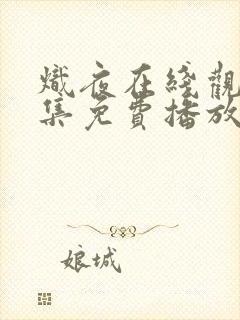 熾夜在綫觀
集免費播放
娘城